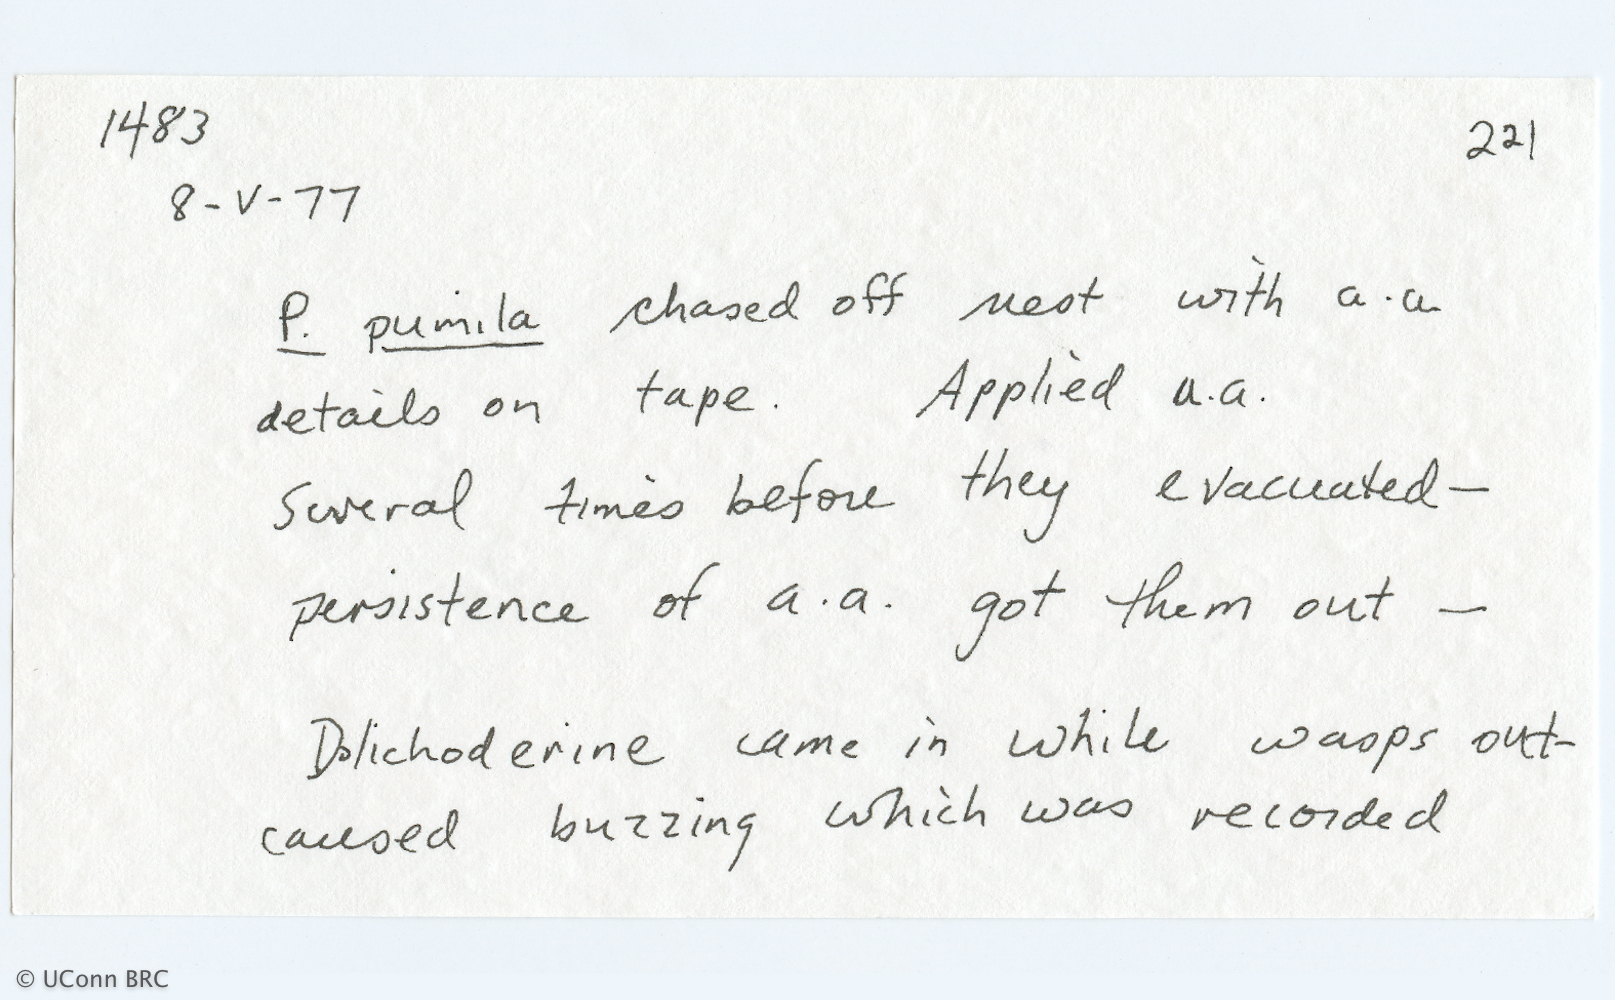 1483
221
8-V-77
P. pumila chased off nest with a.a
details on tape. Applied a.a.
Several times before they evacuated—
persistence of a.a. got them out —
Dolichoderine came in while wasps out-
caused buzzing which was recorded
© UConn BRC